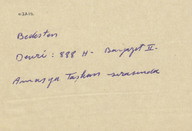 Bedesten
Devri: 888 H- Bayazıt II.
Amasya Taşhan sırasında